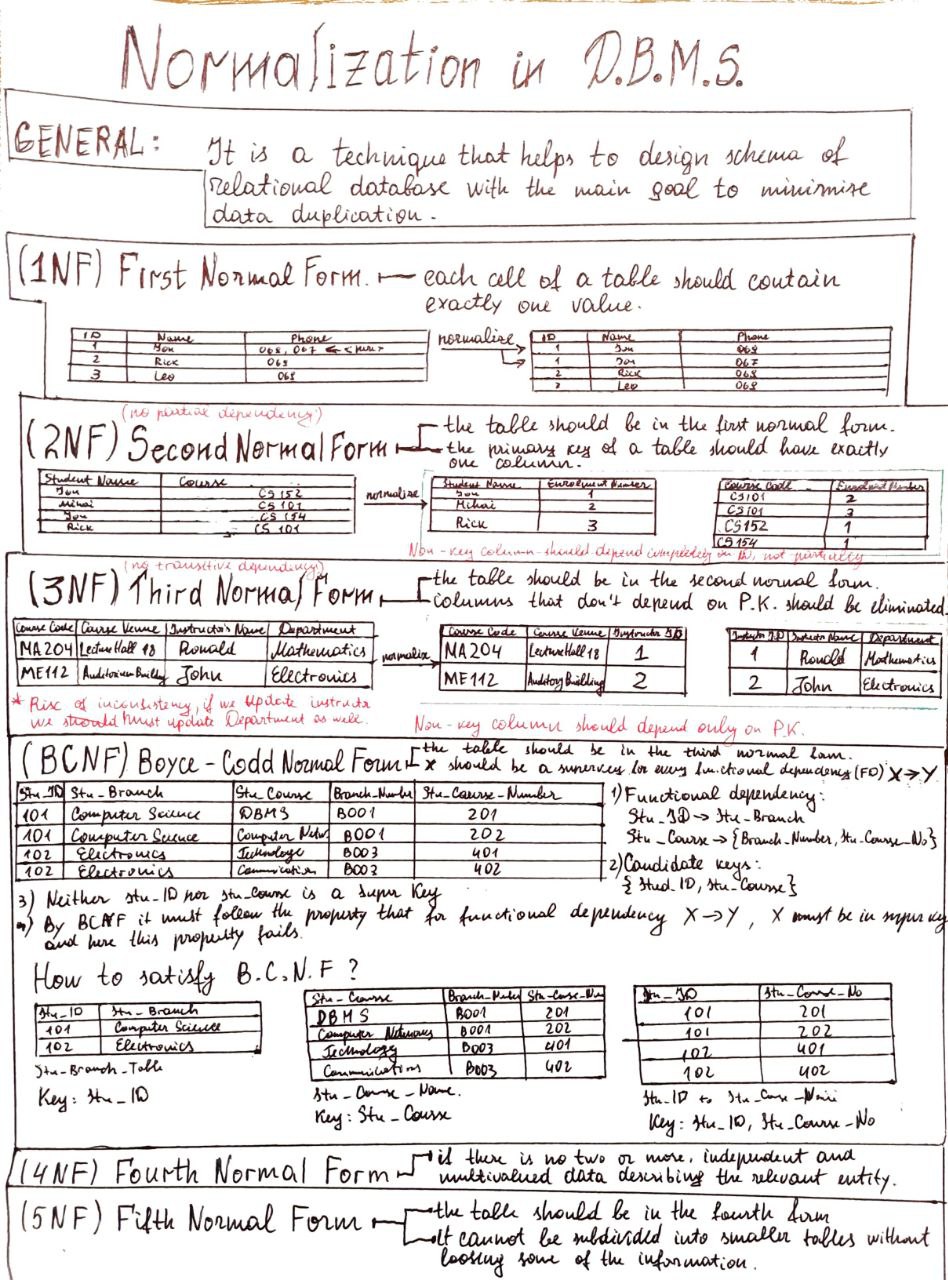 Normalization in D.B.M.S.
GENERAL:
It is a technique that helps to design schema of
relational database with the main goal to minimise
data duplication.
(1NF) First Normal Form. each cell of a table should contain
exactly one value.
ID Name Phone
1 Jon 068, 067
2 Rick 068
3 Leo 068
normalize
ID Name Phone
1 Jon 068
1 Jon 067
2 Rick 068
3 Leo 068
(no partial dependency!)
(2NF) Second Normal Form the table should be in the first normal form.
the primary key of a table should have exactly
one column.
Student Name Course
Jon CS152
Mihai CS101
Jon CS154
Rick CS101
normalize
Student Name Enrolment Number
Jon 1
Mihai 2
Rick 3
Course Code Enrolment Number
CS101 2
CS101 3
CS152 1
CS154 1
Non-key column should depend completely on ID, not partively
(no transitive dependency!)
(3NF) Third Normal Form the table should be in the second normal form.
columns that don't depend on P.K. should be eliminated.
Course Code Course Venue Instructor's Name Department
MA204 Lecture Hall 18 Ronald Mathematics
ME112 Auditorium Building John Electronics
normalize
Course Code Course Venue Instructor ID
MA204 Lecture Hall 18 1
ME112 Auditory Building 2
Instuctr ID Instuctr Name Department
1 Ronald Mathematics
2 John Electronics
* Risk of inconsistency, if we update instructor
we should must update Department as well.
Non-key column should depend only on P.K.
(BCNF) Boyce-Codd Normal Form the table should be in the third normal form.
X should be a superkey for every functional dependency (FD) X→Y
Stu_ID Stu-Branch Stu_Course Branch-Number Stu-Course-Number
101 Computer Science DBMS B001 201
101 Computer Science Computer Netw. B001 202
102 Electronics Technology B003 401
102 Electronics Communication B003 402
1) Functional dependency:
Stu_ID → Stu-Branch
Stu_Course → {Branch_Number, Stu-Course-No}
2) Candidate keys:
{Stud_ID, Stu-Course}
3) Neither stu_ID nor stu_Course is a Super Key
By BCNF it must follow the property that for functional dependency X→Y, X must be in super key
and here this property fails.
How to satisfy B.C.N.F?
Stu_ID Stu-Branch
101 Computer Science
102 Electronics
Stu-Branch_Table
Key: Stu_ID
Stu-Course Branch-Number Stu-Course-Num
DBMS B001 201
Computer Networks B001 202
Technology B003 401
Communications B003 402
Stu-Course-Name.
Key: Stu-Course
Stu_ID Stu-Course-No
101 201
101 202
102 401
102 402
Stu_ID to Stu-Course-
Key: Stu_ID, Stu-Course-No
(4NF) Fourth Normal Form if there is no two or more, independent and
multivalued data describing the relevant entity.
(5NF) Fifth Normal Form the table should be in the fourth form
It cannot be subdivided into smaller tables without
loosing some of the information.